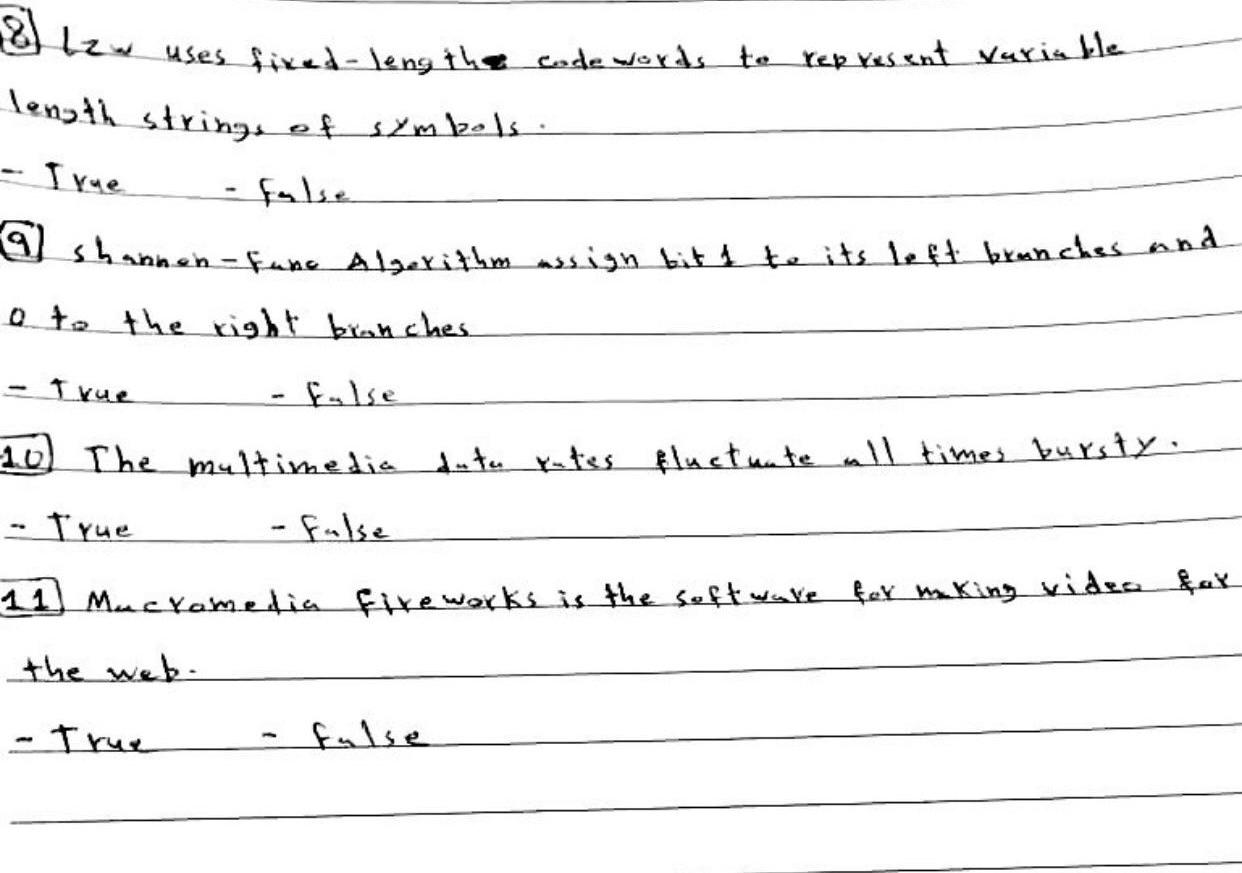 8 Lzw uses fixed-length codewords to represent variable
length strings of symbols.
- True - False
9 Shannon-Fano Algorithm assign bit 1 to its left branches and
0 to the right branches
- True - False
10 The multimedia data rates fluctuate all times bursty.
- True - False
11 Macromedia Fireworks is the software for making video for
the web.
- True - False